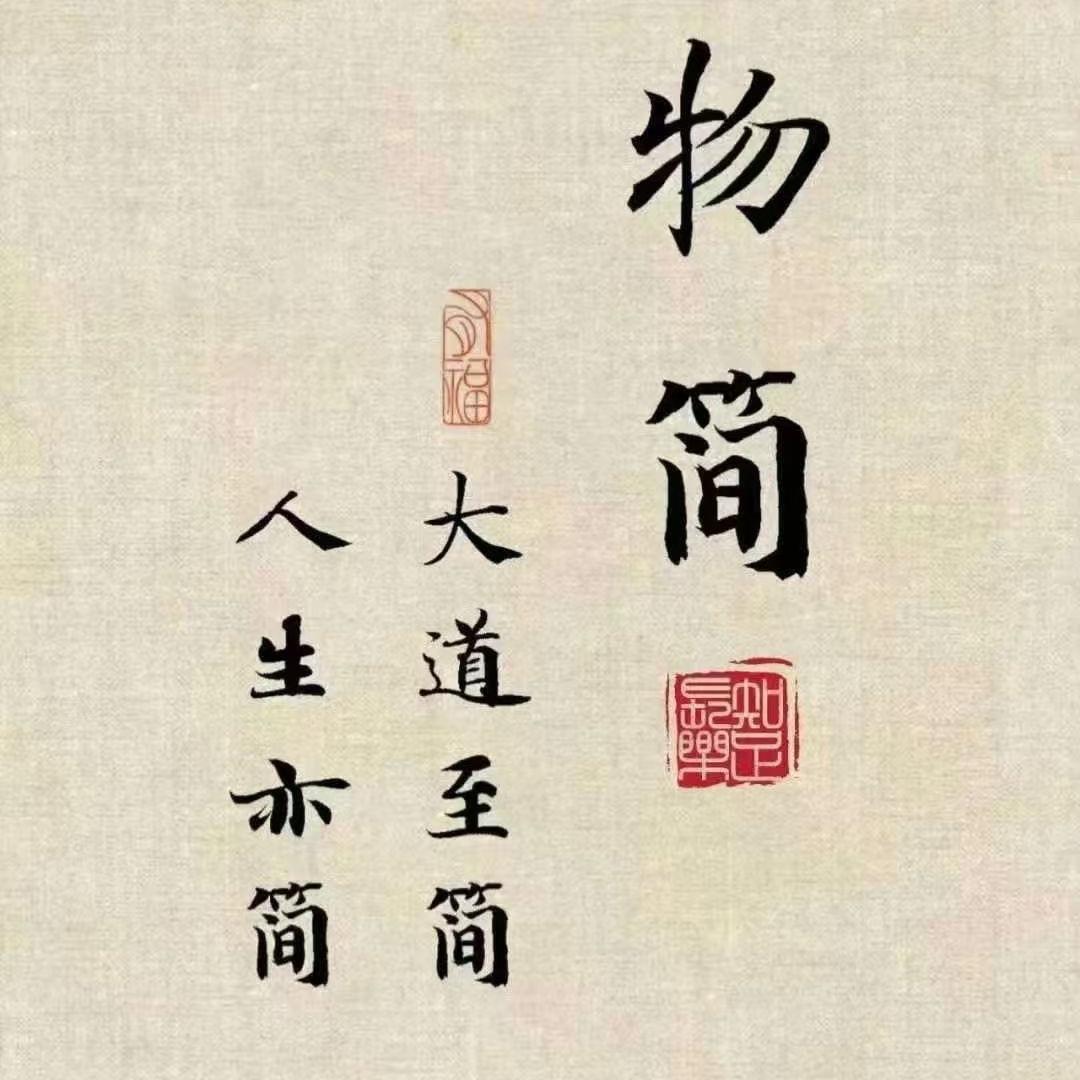 物简
知足
長樂
大道至简
人生亦简
有福